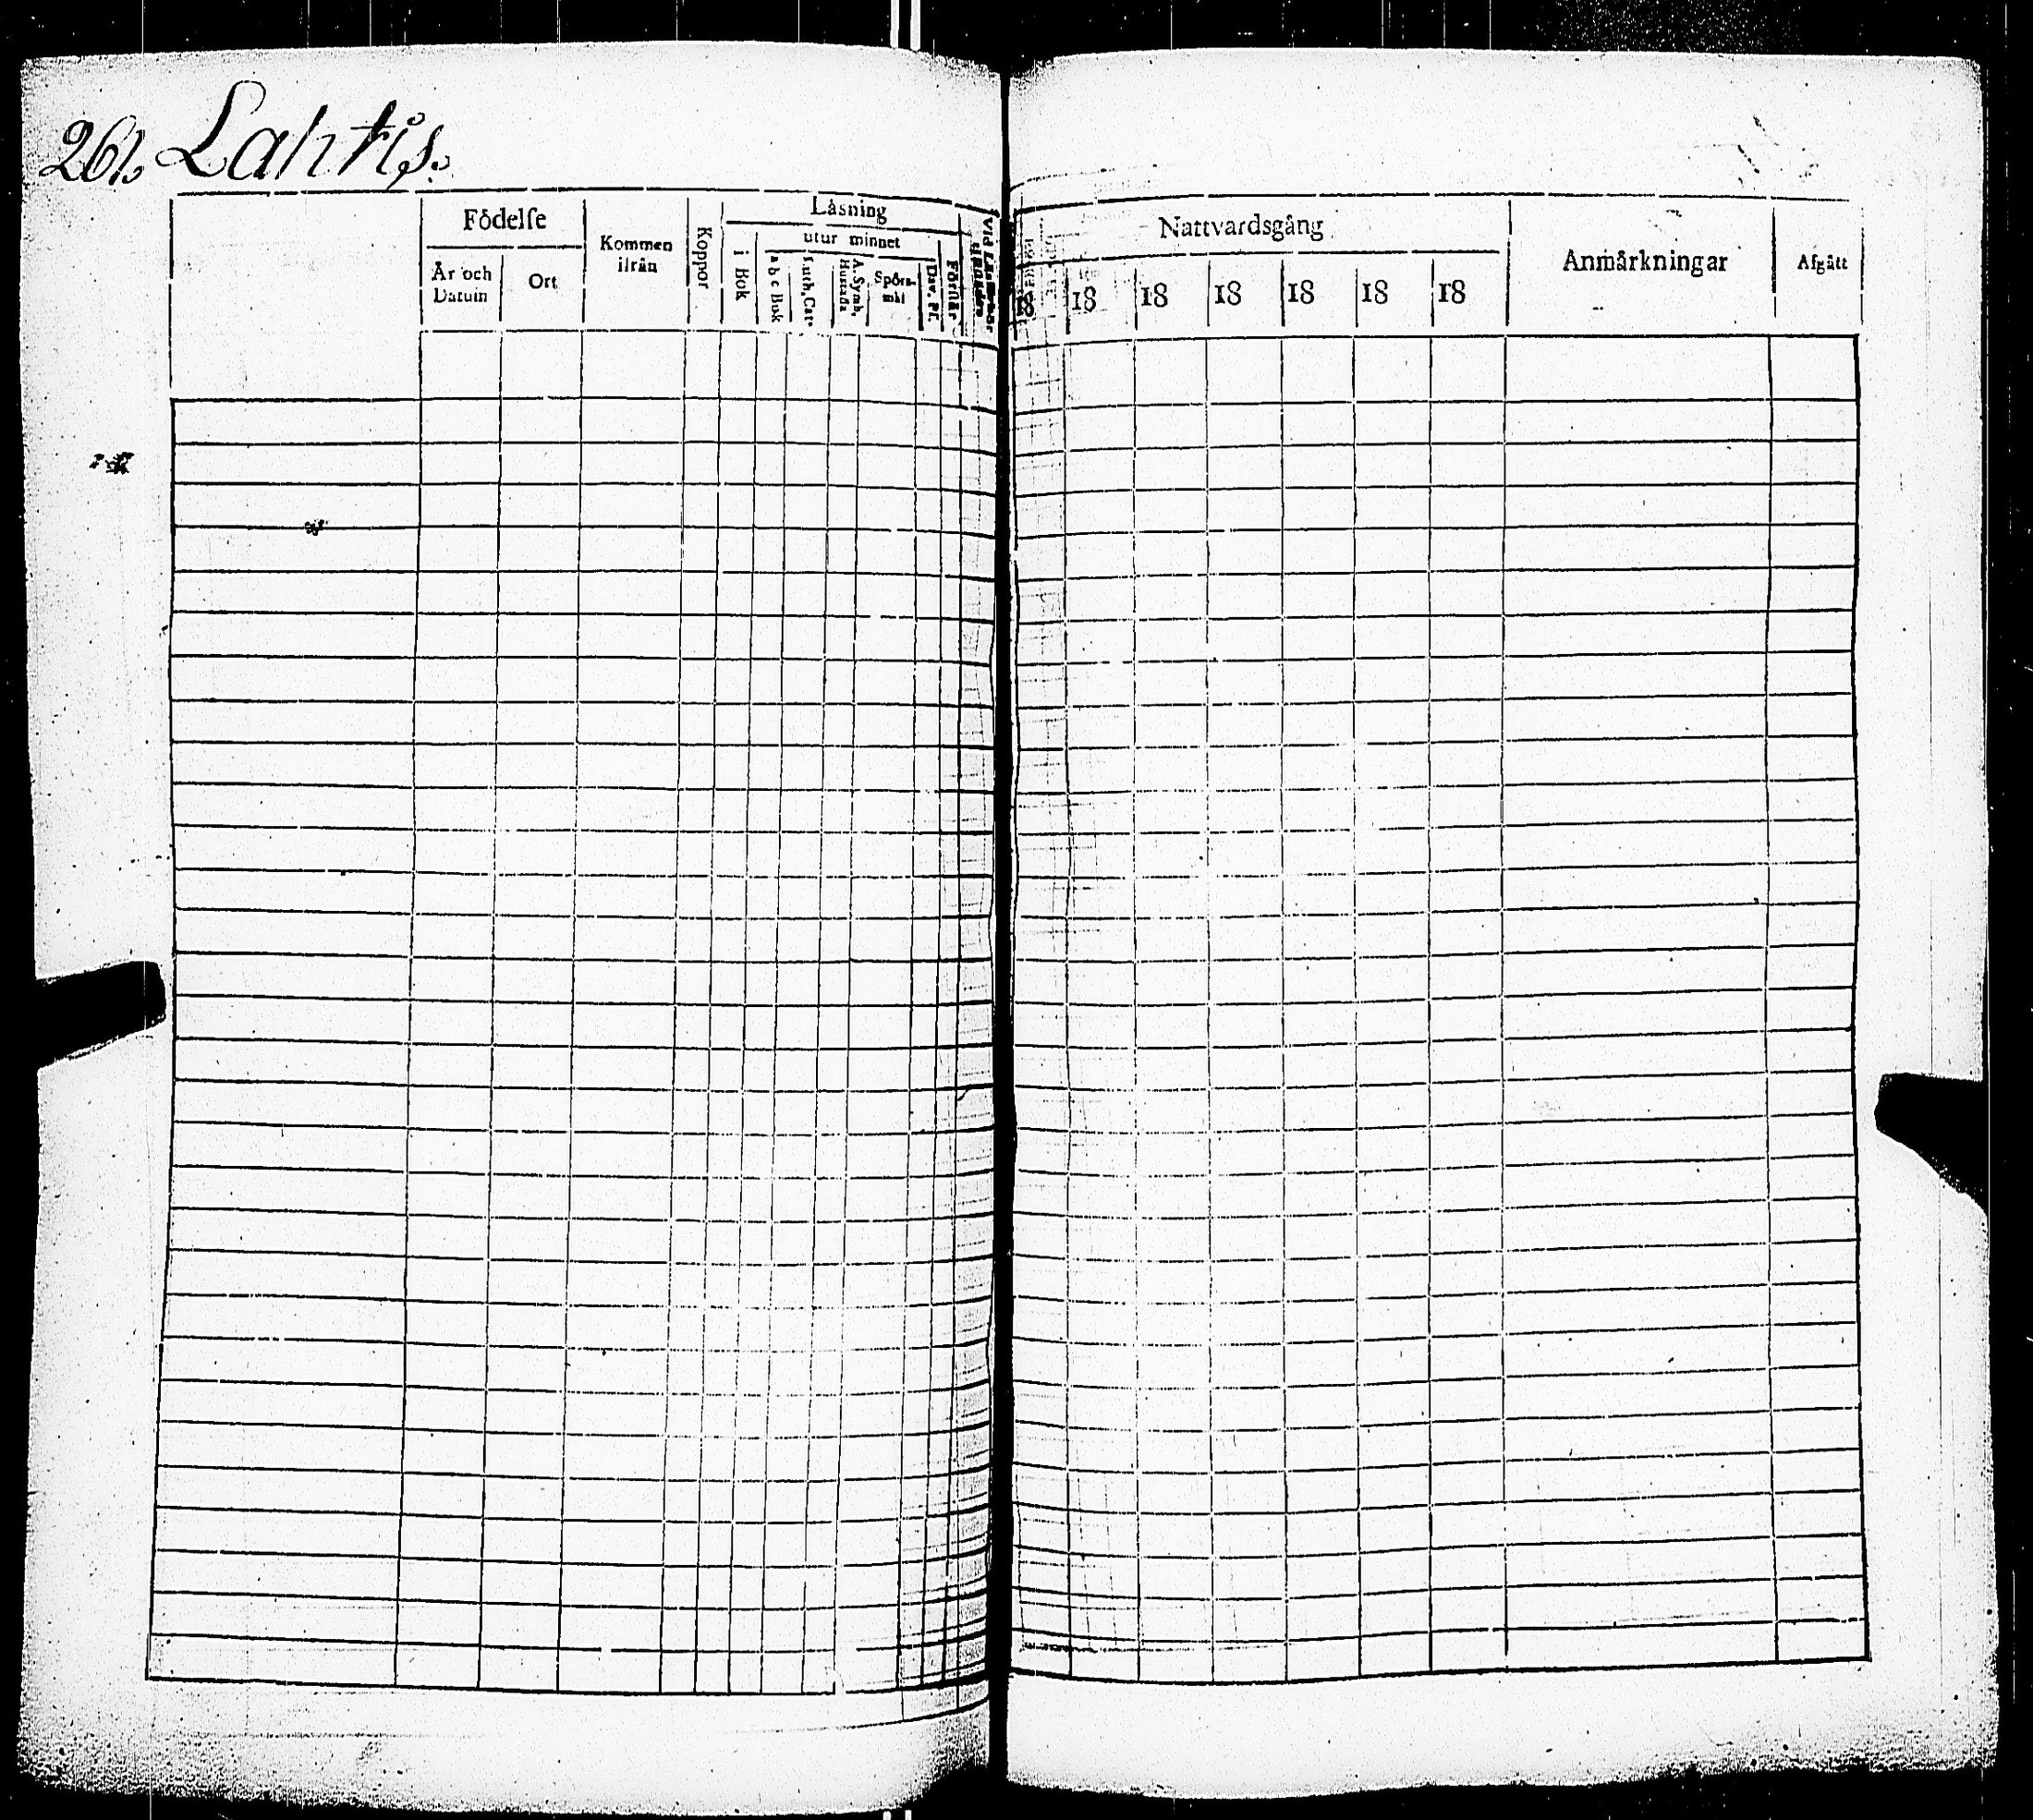 261. Lahtis.
Födelse
År och Datum
Ort
Kommen ifrån
Koppor
Läsning
i Bok
utur minnet
a b c Bok
Luth. Cat.
A. Symb. Hustafla
Spörsmål
Dav. Ps.
Förstår
Nattvardsgång
18 18 18 18 18 18 18
Anmärkningar
Afgått